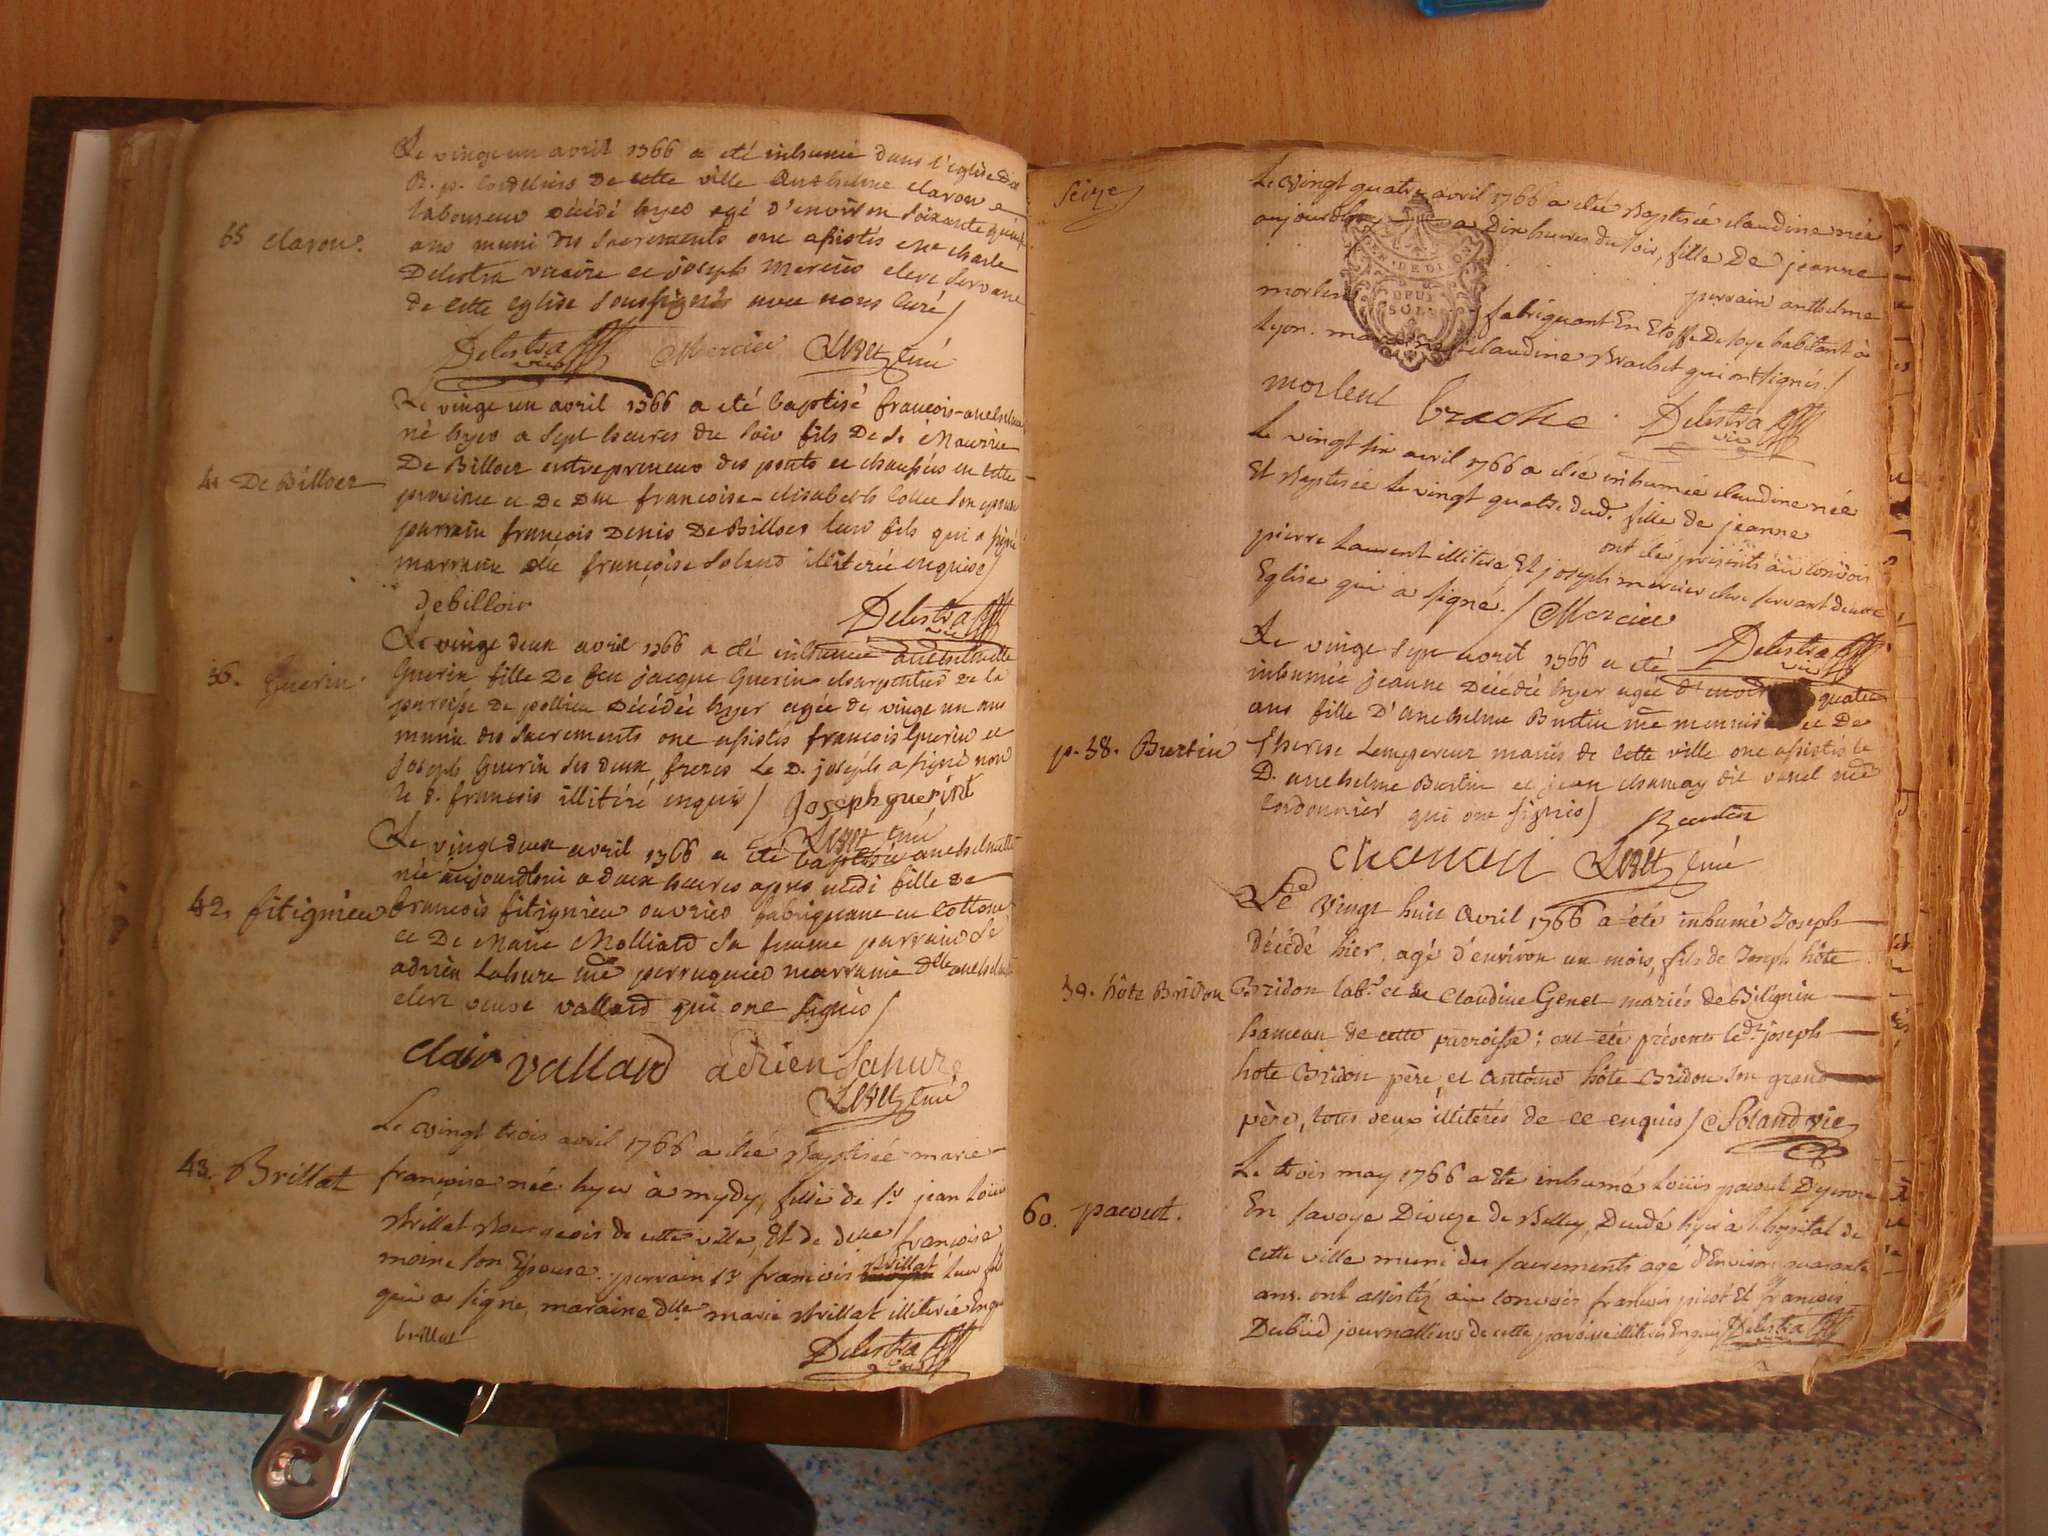 Le vingt un avril 1766 a été inhumé dans l'église des
R. p. Cordeliers De cette ville Anthelme claron
laboureur Décédé hyer agé d'environ soixante quinze
55 claron.
ans muni des sacrements ont assistés Mre charle
Delestra vicaire et joseph Mercier clerc servant
de cette Eglise soussignés avec nous curé /
Delestra vic Mercier curé
Le vingt un avril 1766 a été baptisé françois-anthelme
né hyer a sept heures du soir fils De Sr Maurice
41 De Billoez
De Billoez entrepreneur des ponts et chaussées en cette
province et de Dlle francoise-elisabeth son epouse
parrain françois Denis De Billoez leur fils qui a signé
marraine dlle françoise Soland illiterée enquise /
debilloir Delestra vic
Le vingt deux avril 1766 a été inhumée anthelmette
56. Guerin
Guerin fille De feu jacque Guerin charpentier de la
paroisse de pollieu Décédée hyer agée de vingt un ans
munie des sacrements ont assistés françois Guerin et
joseph Guerin ses deux freres Le D. joseph a signé non
le d. francois illitéré enquis / joseph guerint
curé
Le vingt deux avril 1766 a été baptisée anthelmette
née aujourdhui a deux heures apres midi fille de
42. fitignieu
francois fitignieu ouvrier fabriquant en cottone
et De Marie Molliard sa femme parrain Sr
adrien Lahure me perruquier marraine dlle anthelmette
clerc veuve vallard qui ont signés /
clair vallard adrien Lahure
curé
Le vingt trois avril 1766 a été Baptisée marie-
43. Brillat
françoise née hyer à mydy, fille de Sr jean Loüis
Brillat Bourgeois de cette ville, Et de delle françoise
moine son Epouse. parrain Sr francois Brillat leur fils
qui a signé, maraine dlle marie Brillat illiterée Enqu
brillat
Delestra vic
seize
Le vingt quatre avril 1766 a été Baptisée claudine née
aujourdhuy a Dix heures du soir, fille De jeanne
parrain anthelme
DEUX
SOLS
morlent fabriquant En Etoffe De soye habitant à
Lyon. maraine claudine Brachet qui ont signés. /
morlent brache Delestra vic
Le vingt six avril 1766 a été inhumée claudine née
Et Baptisée Le vingt quatre dud. fille de jeanne
ont été présents au convois
pierre Laurent illitere Et joseph mercier clerc servant de cette
Eglise qui a signé. / Mercier
Delestra vic
Le vingt sept avril 1766 a été
inhumée jeanne Décédée hyer agée d'environ quatre
ans fille D'anthelme Burtin me menuisier et De
p. 38. Burtin
therese Lempereur mariés de cette ville ont assistés le
D. anthelme Burtin et jean chamay dit vanel me
Cordonnier qui ont signés /
Burtin
chamay curé
Le Vingt huit Avril 1766 a été inhumé Joseph
décédé hier, agé d'environ un mois, fils de Joseph hôte
39. hôte Bridon
Bridon labr et de Claudine Genet mariés de Bilignin
hameau de cette parroisse: ont été présents le dt joseph
hote Bridon père, et Antoine hôte Bridon son grand
père, tous deux illitérés de ce enquis / Soland vic
Le trois may 1766 a Ete inhumé Loüis pacout Dyenne
60. pacout.
En savoye Dioceze de Belley, Decedé hyer à lhopital de
cette ville muni des sacrements agé d'Environ quarante
ans. ont assistés au convois francois picot Et françois
Dubud journalliers de cette paroisse illiterés Enquis / Delestra